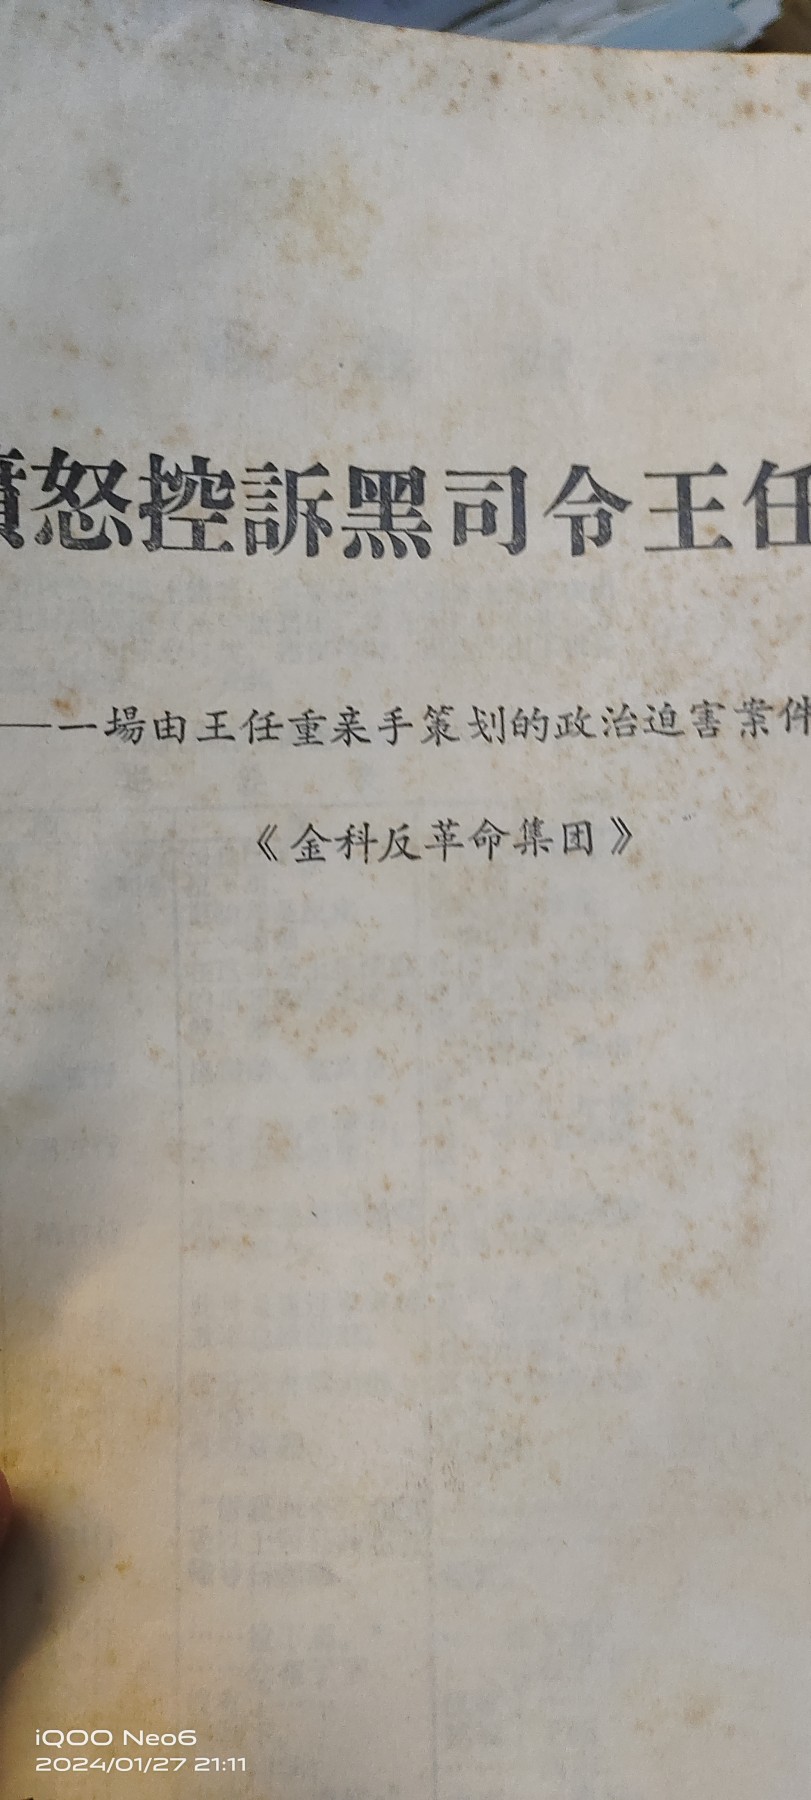 憤怒控訴黑司令王任
——一場由王任重亲手策划的政治迫害案件
《金科反革命集团》
iQOO Neo6
2024/01/27 21:11